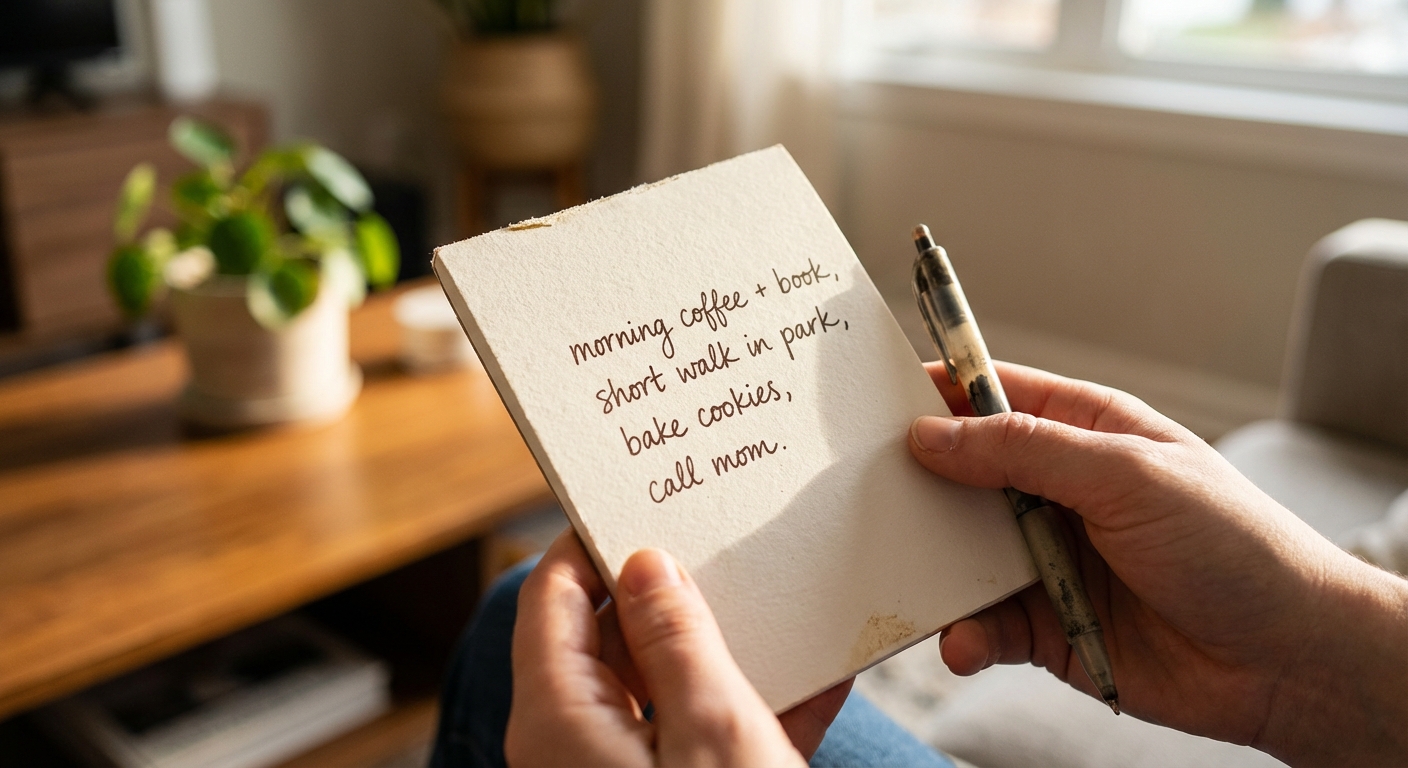 morning coffee + book,
short walk in park,
bake cookies,
call mom.